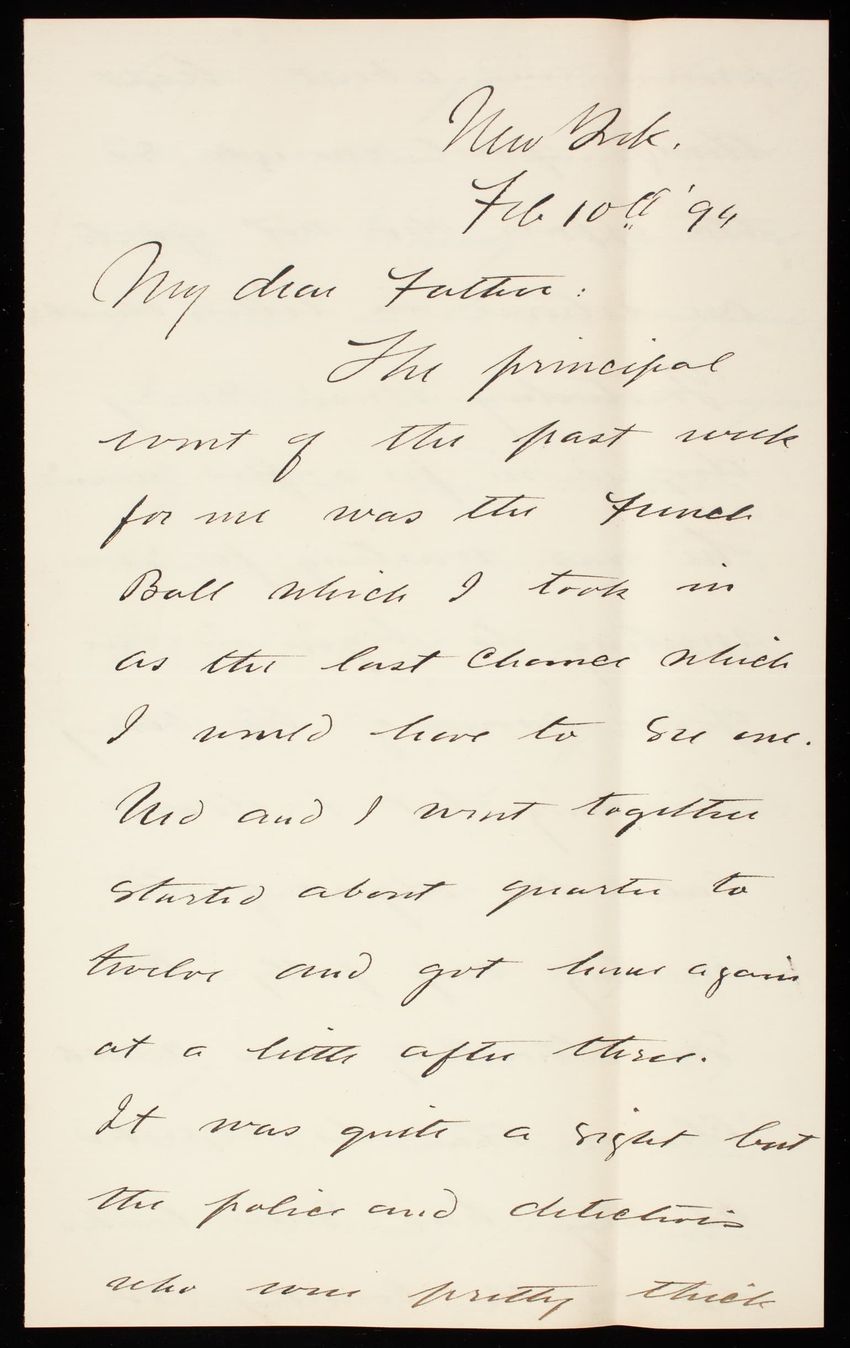 New York.
Feb 10th '94
My dear Father:
The principal
event of the past week
for me was the French
Ball which I took in
as the last chance which
I would have to see one.
Ned and I went together
started about quarter to
twelve and got home again
at a little after three.
It was quite a sight but
the police and detectives
who were pretty thick